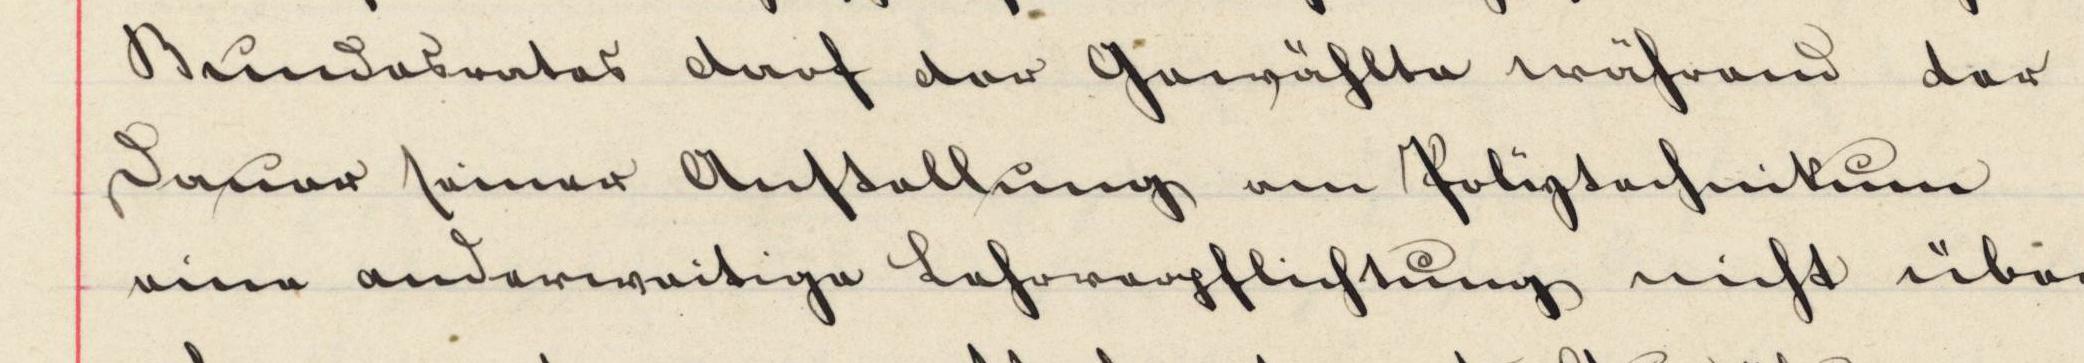 Bundesrates darf der Gewählte während der
Dauer seiner Anstellung am Polytechnikum
eine anderweitige Lehrverpflichtung nicht über